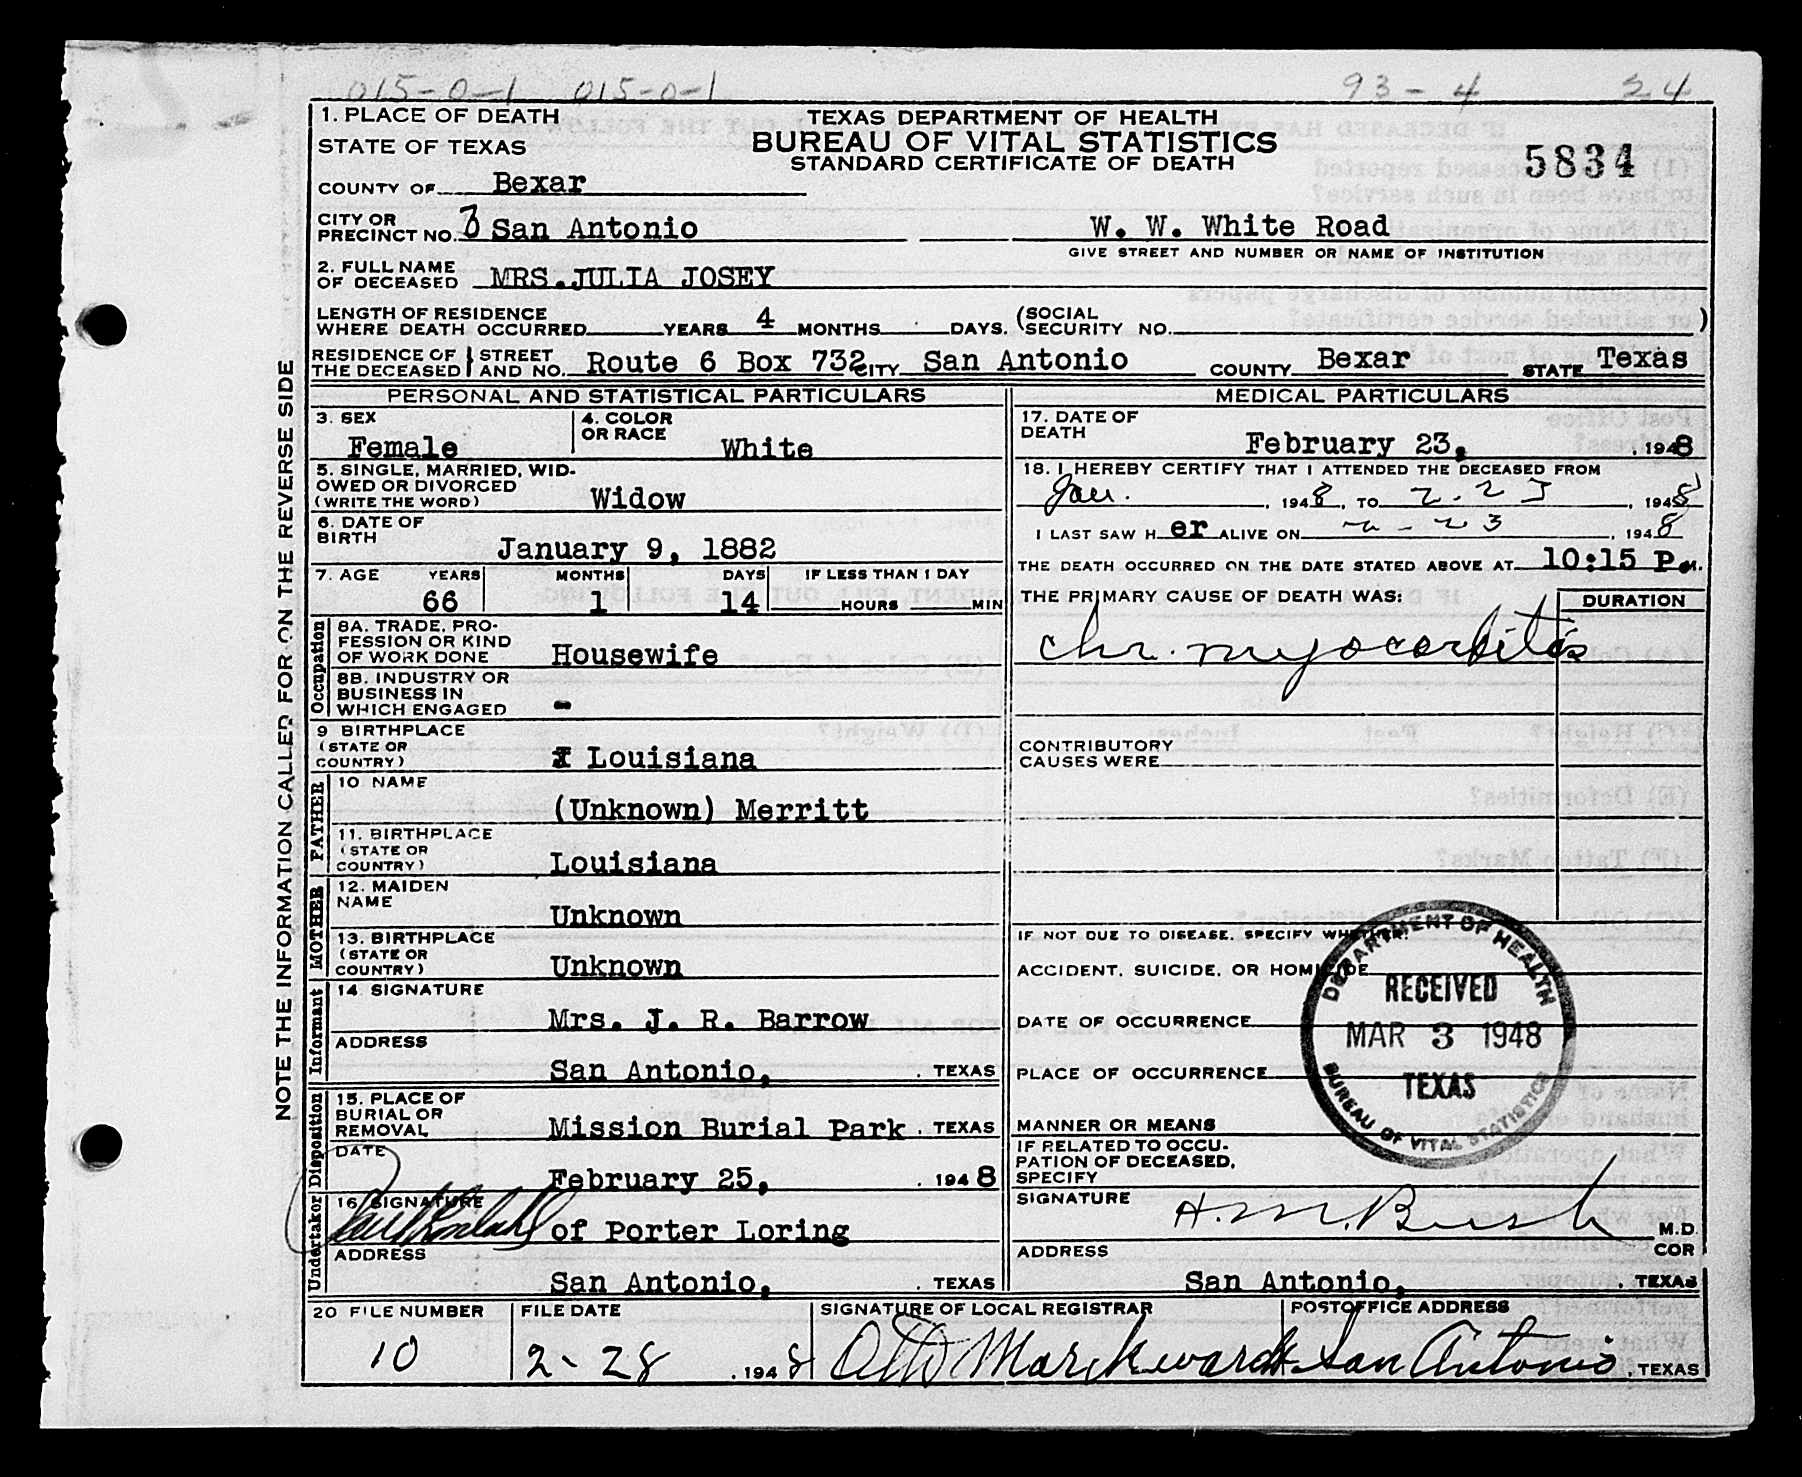 015-0-1 015-0-1 93-4 24
1. PLACE OF DEATH
STATE OF TEXAS
TEXAS DEPARTMENT OF HEALTH
BUREAU OF VITAL STATISTICS
STANDARD CERTIFICATE OF DEATH
5834
COUNTY OF Bexar
CITY OR PRECINCT NO. 3 San Antonio W. W. White Road
GIVE STREET AND NUMBER OR NAME OF INSTITUTION
2. FULL NAME OF DECEASED MRS. JULIA JOSEY
LENGTH OF RESIDENCE WHERE DEATH OCCURRED YEARS 4 MONTHS DAYS. (SOCIAL SECURITY NO. )
RESIDENCE OF THE DECEASED STREET AND NO. Route 6 Box 732 CITY San Antonio COUNTY Bexar STATE Texas
PERSONAL AND STATISTICAL PARTICULARS
3. SEX Female
4. COLOR OR RACE White
5. SINGLE, MARRIED, WIDOWED OR DIVORCED (WRITE THE WORD) Widow
6. DATE OF BIRTH January 9, 1882
7. AGE YEARS MONTHS DAYS IF LESS THAN 1 DAY
66 1 14 HOURS MIN
Occupation
8A. TRADE, PROFESSION OR KIND OF WORK DONE Housewife
8B. INDUSTRY OR BUSINESS IN WHICH ENGAGED -
9 BIRTHPLACE (STATE OR COUNTRY) Louisiana
FATHER
10 NAME (Unknown) Merritt
11. BIRTHPLACE (STATE OR COUNTRY) Louisiana
MOTHER
12. MAIDEN NAME Unknown
13. BIRTHPLACE (STATE OR COUNTRY) Unknown
Informant
14 SIGNATURE Mrs. J. R. Barrow
ADDRESS San Antonio, . TEXAS
Disposition
15. PLACE OF BURIAL OR REMOVAL Mission Burial Park . TEXAS
DATE February 25, . 1948
Undertaker
16 SIGNATURE of Porter Loring
ADDRESS San Antonio, . TEXAS
MEDICAL PARTICULARS
17. DATE OF DEATH February 23, . 1948
18. I HEREBY CERTIFY THAT I ATTENDED THE DECEASED FROM
Jan. , 1948, TO 2-23 , 1948
I LAST SAW HER ALIVE ON 2-23 , 1948
THE DEATH OCCURRED ON THE DATE STATED ABOVE AT 10:15 P.M.
THE PRIMARY CAUSE OF DEATH WAS: DURATION
chr. myocarditis
CONTRIBUTORY CAUSES WERE
IF NOT DUE TO DISEASE, SPECIFY WHETHER:
ACCIDENT, SUICIDE, OR HOMICIDE
DATE OF OCCURRENCE
PLACE OF OCCURRENCE
MANNER OR MEANS
IF RELATED TO OCCUPATION OF DECEASED, SPECIFY
DEPARTMENT OF HEALTH
RECEIVED
MAR 3 1948
TEXAS
BUREAU OF VITAL STATISTICS
SIGNATURE H. M. Bush M.D.
COR
ADDRESS San Antonio, . TEXAS
20 FILE NUMBER FILE DATE SIGNATURE OF LOCAL REGISTRAR POSTOFFICE ADDRESS
10 2-28 . 1948 Otto Marckwardt San Antonio, TEXAS
NOTE THE INFORMATION CALLED FOR ON THE REVERSE SIDE